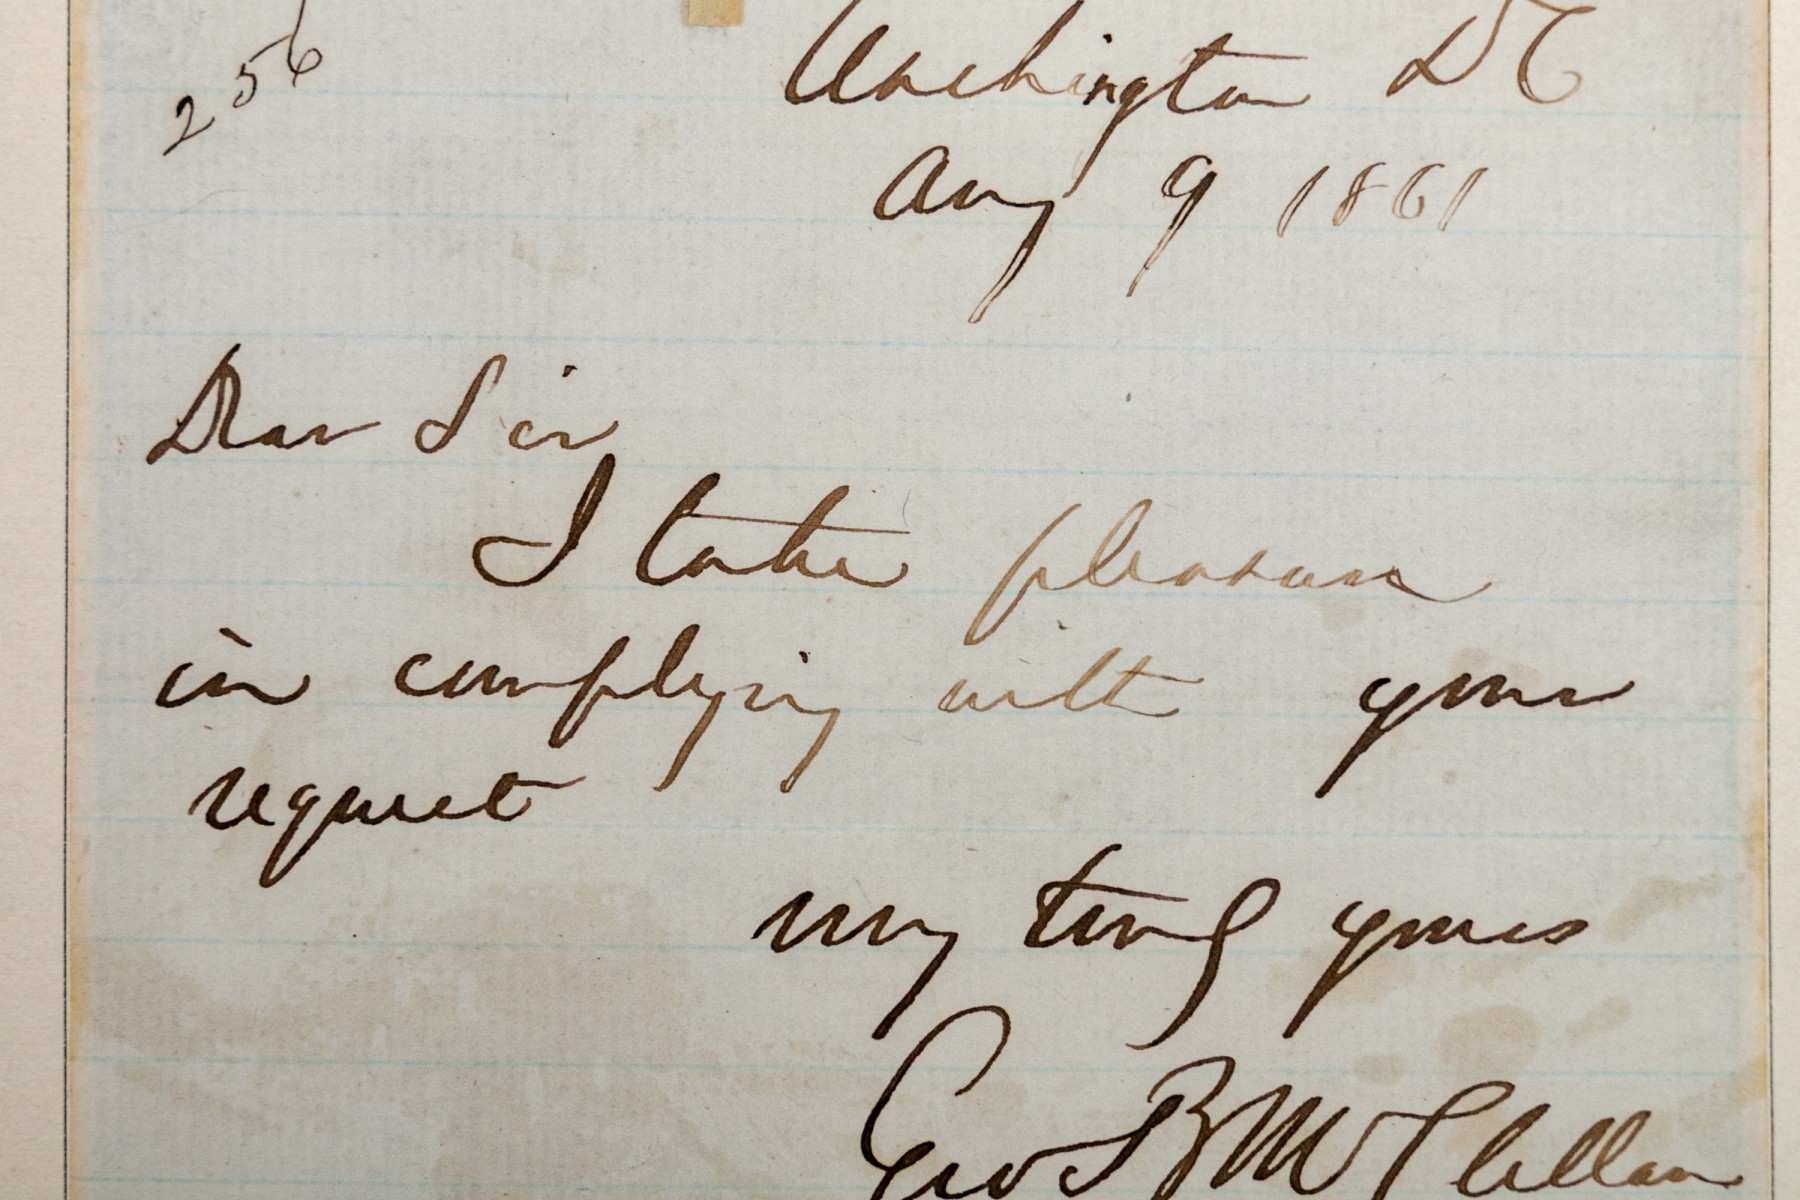 256
Washington DC
Aug 9 1861
Dear Sir
I take pleasure
in complying with your
request
very truly yours
Geo B McClellan